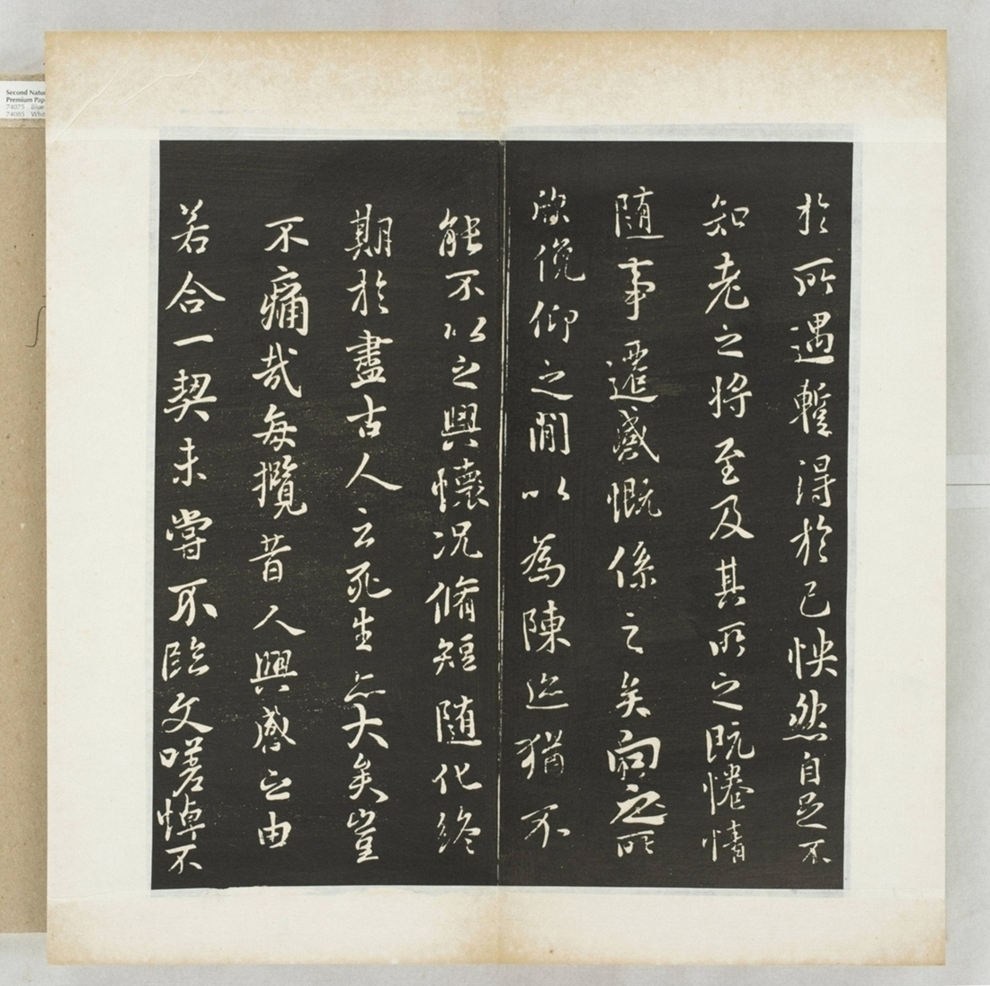 於所遇蹔得於己怏然自足不
知老之將至及其所之既惓情
隨事遷感慨係之矣向之所
欣俛仰之閒以為陳迹猶不
能不以之興懷况脩短隨化終
期於盡古人云死生亦大矣豈
不痛哉每攬昔人興感之由
若合一契未嘗不臨文嗟悼不
Second Natu
Premium Pap
74075 Blue
74085 Whit